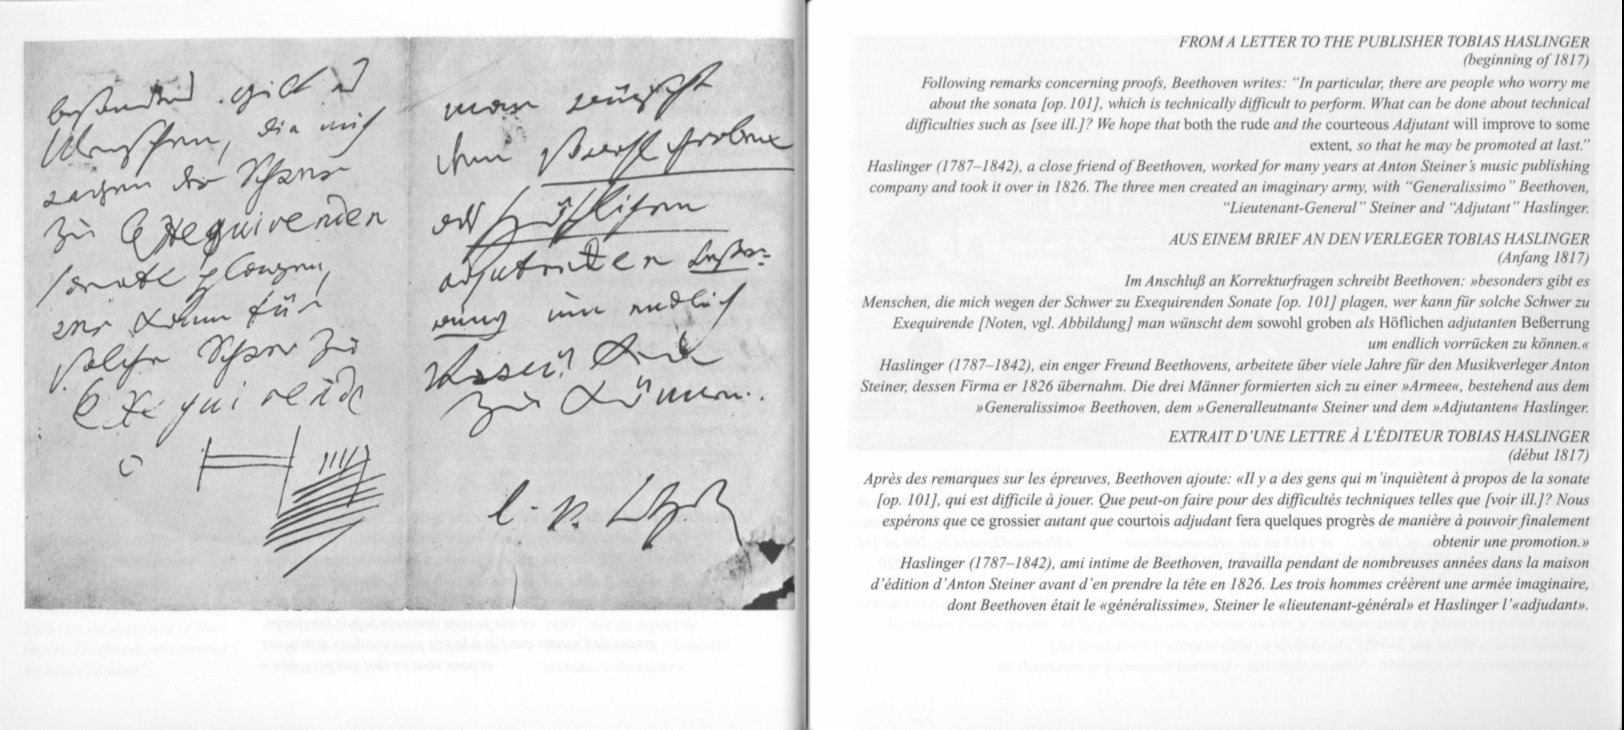 besonders gibt es
Menschen, die mich
wegen der Schwer
zu Exequirenden
Sonate plagen,
wer kann für
solche Schwer zu
Exequirende
man wünscht
dem sowohl groben
als Höflichen
adjutanten Beße-
rung um endlich
vorrücken
zu können.
FROM A LETTER TO THE PUBLISHER TOBIAS HASLINGER
(beginning of 1817)
Following remarks concerning proofs, Beethoven writes: “In particular, there are people who worry me
about the sonata [op. 101], which is technically difficult to perform. What can be done about technical
difficulties such as [see ill.]? We hope that both the rude and the courteous Adjutant will improve to some
extent, so that he may be promoted at last.”
Haslinger (1787–1842), a close friend of Beethoven, worked for many years at Anton Steiner’s music publishing
company and took it over in 1826. The three men created an imaginary army, with “Generalissimo” Beethoven,
“Lieutenant-General” Steiner and “Adjutant” Haslinger.
AUS EINEM BRIEF AN DEN VERLEGER TOBIAS HASLINGER
(Anfang 1817)
Im Anschluß an Korrekturfragen schreibt Beethoven: »besonders gibt es
Menschen, die mich wegen der Schwer zu Exequirenden Sonate [op. 101] plagen, wer kann für solche Schwer zu
Exequirende [Noten, vgl. Abbildung] man wünscht dem sowohl groben als Höflichen adjutanten Beßerrung
um endlich vorrücken zu können.«
Haslinger (1787–1842), ein enger Freund Beethovens, arbeitete über viele Jahre für den Musikverleger Anton
Steiner, dessen Firma er 1826 übernahm. Die drei Männer formierten sich zu einer »Armee«, bestehend aus dem
»Generalissimo« Beethoven, dem »Generalleutnant« Steiner und dem »Adjutanten« Haslinger.
EXTRAIT D’UNE LETTRE À L’ÉDITEUR TOBIAS HASLINGER
(début 1817)
Après des remarques sur les épreuves, Beethoven ajoute: «Il y a des gens qui m’inquiètent à propos de la sonate
[op. 101], qui est difficile à jouer. Que peut-on faire pour des difficultés techniques telles que [voir ill.]? Nous
espérons que ce grossier autant que courtois adjudant fera quelques progrès de manière à pouvoir finalement
obtenir une promotion.»
Haslinger (1787–1842), ami intime de Beethoven, travailla pendant de nombreuses années dans la maison
d’édition d’Anton Steiner avant d’en prendre la tête en 1826. Les trois hommes créèrent une armée imaginaire,
dont Beethoven était le «généralissime», Steiner le «lieutenant-général» et Haslinger l’«adjudant».